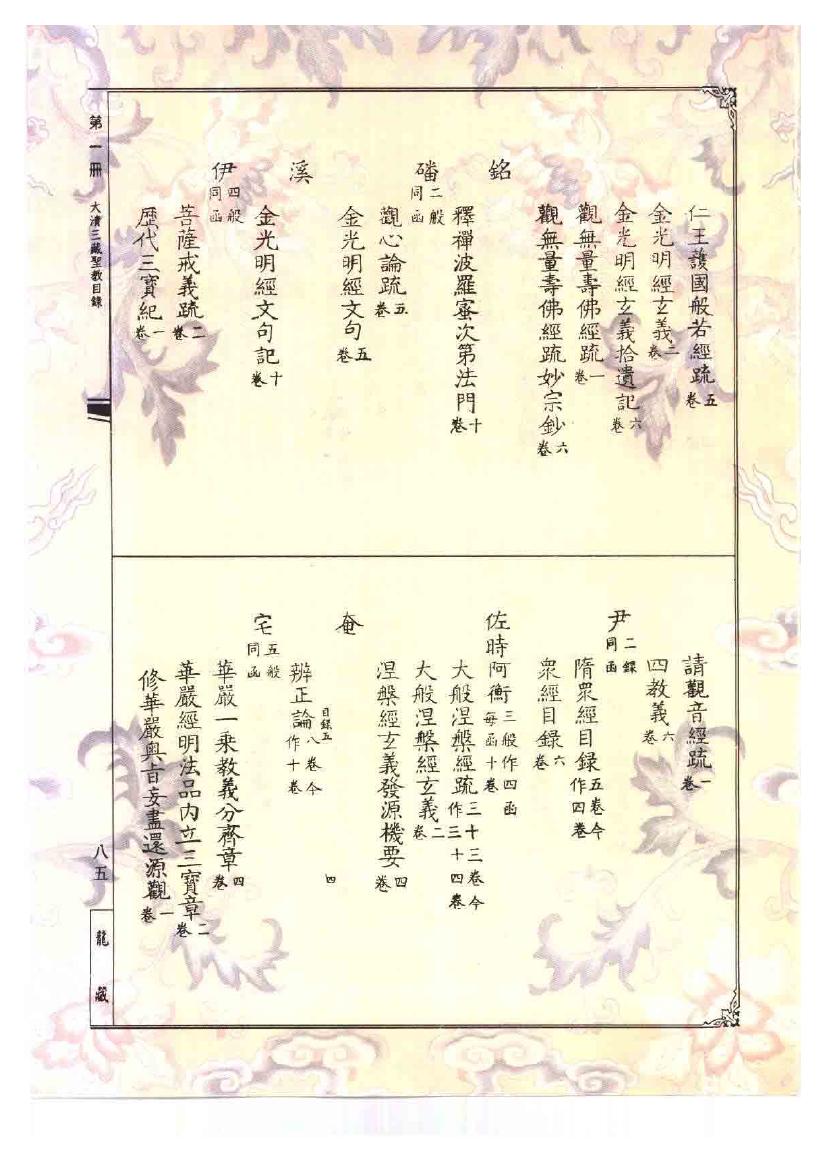 仁王護國般若經疏五卷
金光明經玄義二卷
金光明經玄義拾遺記六卷
觀無量壽佛經疏一卷
觀無量壽佛經疏妙宗鈔六卷
銘
釋禪波羅蜜次第法門十卷
磻二般同函
觀心論疏五卷
金光明經文句五卷
溪
金光明經文句記十卷
伊四般同函
菩薩戒義疏二卷
歷代三寶紀一卷
請觀音經疏一卷
四教義六卷
尹二錄同函
隋眾經目錄五卷今作四卷
眾經目錄六卷
佐時阿衡三般作四函每函十卷
大般涅槃經疏三十三卷今作三十四卷
大般涅槃經玄義二卷
涅槃經玄義發源機要四卷
奄
目錄五 四
辨正論八卷今作十卷
宅五般同函
華嚴一乘教義分齊章四卷
華嚴經明法品內立三寶章二卷
修華嚴奧旨妄盡還源觀一卷
第一冊 大清三藏聖教目錄
八五
龍藏